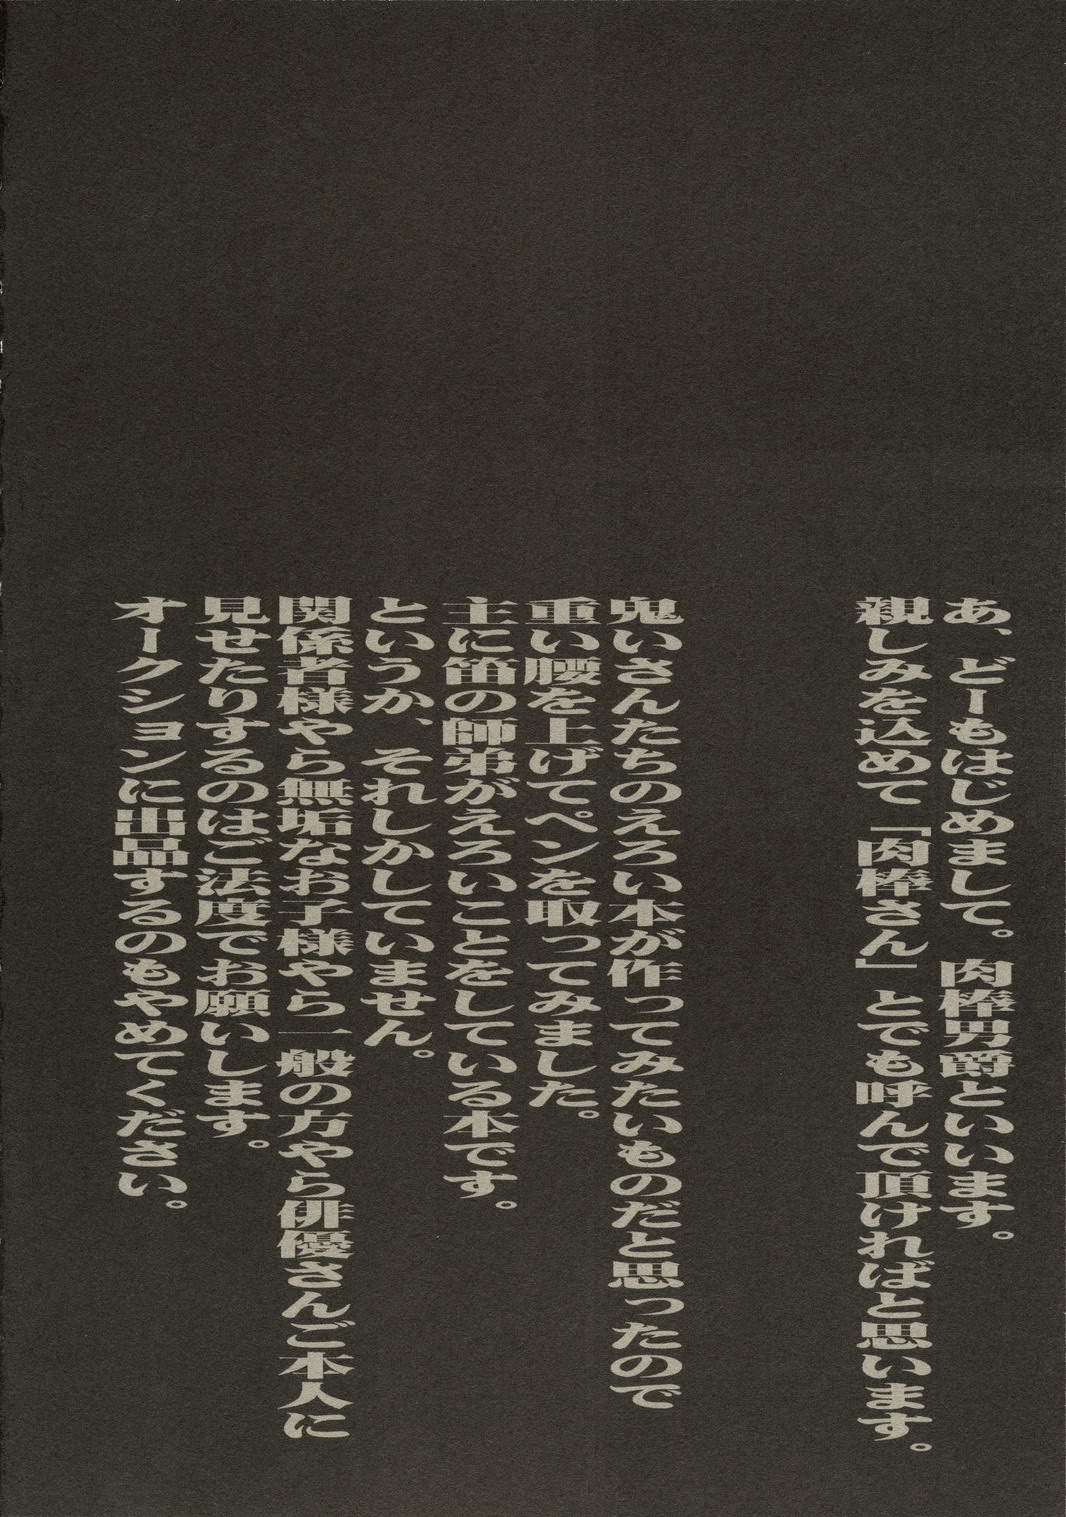 あ、どーもはじめまして。肉棒男爵といいます。
親しみを込めて『肉棒さん』とでも呼んで頂ければと思います。
鬼いさんたちのえろい本が作ってみたいものだと思ったので
重い腰を上げてペンを取ってみました。
主に笛の師弟がえろいことをしている本です。
というか、それしかしていません。
関係者様やら無垢なお子様やら一般の方やら俳優さんご本人に
見せたりするのはご法度でお願いします。
オークションに出品するのもやめてください。